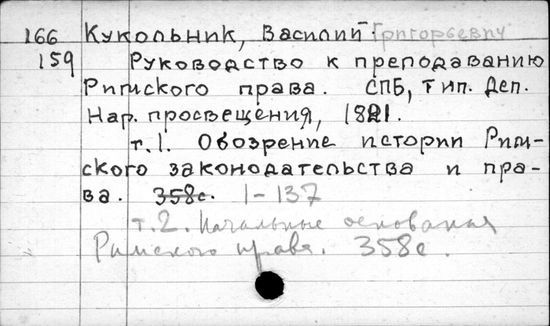 166 Кукольник, Василий Григорьевич
159 Руководство к преподаванию
Римского права. СПБ, тип. Деп.
Нар. просвещения, 1821.
т.1. Обозрение истории Рим-
ского законодательства и пра-
ва. 358с. 1-137
т.2. Начальные основания
Римского права. 358с.